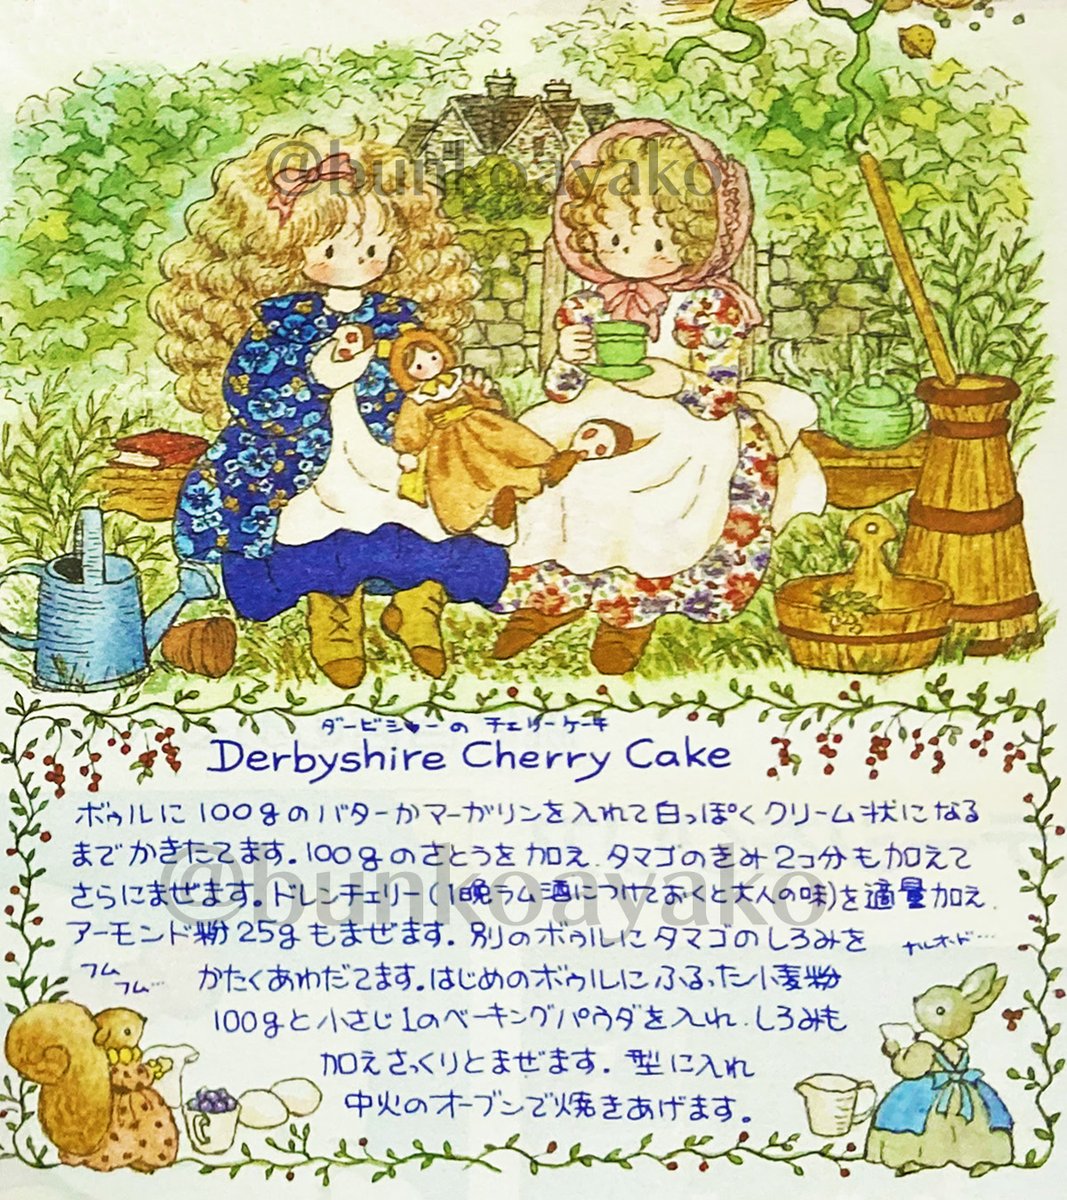 @bunkoayako
ダービシャーの チェリーケーキ
Derbyshire Cherry Cake
ボゥルに100gのバターかマーガリンを入れて白っぽくクリーム状になる
までかきたてます。100gのさとうを加え、タマゴのきみ2コ分も加えて
さらにまぜます。ドレンチェリー(1晩ラム酒につけておくと大人の味)を適量加え、
@bunkoayako
アーモンド粉25gもまぜます。別のボゥルにタマゴのしろみを
ナルホド…
フム
フム…
かたくあわだてます。はじめのボゥルにふるった小麦粉
100gと小さじ1のベーキングパウダを入れ、しろみも
加えさっくりとまぜます。型に入れ
中火のオーブンで焼きあげます。